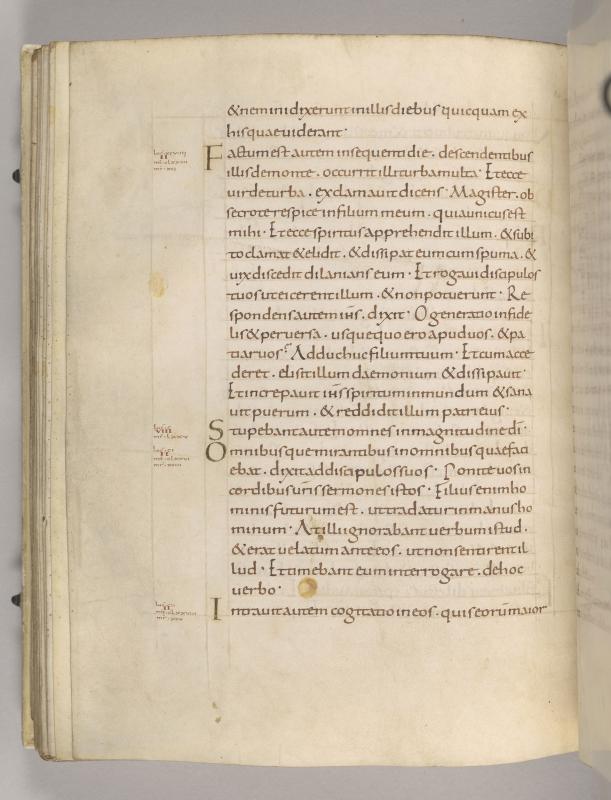 &nemini dixerunt inillis diebus quicquam ex
his quae uiderant·
Factum est autem insequenti die. descendentibus
illis demonte. occurrit illi turba multa· Et ecce
uir deturba. exclamauit dicens· Magister. ob
secro te respice infilium meum. quia unicus est
mihi· Et ecce spiritus apprehendit illum. &subi
to clamat &elidit. &dissipat eum cum spuma. &
uix discedit dilanians eum· Et rogaui discipulos
tuos ut eicerent illum. &non potuerunt· Re
spondens autem ihs. dixit· O generatio infide
lis &peruersa. usque quo ero apud uos. &pa
tiar uos? Adduc huc filium tuum· Et cum acce
deret. elisit illum daemonium &dissipauit·
Et increpauit ihs spiritum inmundum &sana
uit puerum. &reddidit illum patri eius·
Stupebant autem omnes in magnitudine di·
Omnibusque mirantibus in omnibus quae faci
ebat. dixit ad discipulos suos· Ponite uos in
cordibus uris sermones istos· Filius enim ho
minis futurum est. ut tradatur in manus ho
minum· At illi ignorabant uerbum istud.
&erat uelatum ante eos. ut non sentirent il
lud· Et timebant eum interrogare. de hoc
uerbo·
Intrauit autem cogitatio in eos. quis eorum maior